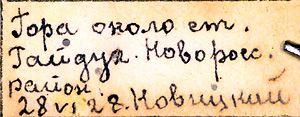 Гора около ст.
Гайдук. Новорос.
район.
28 VI 28. Новицкий